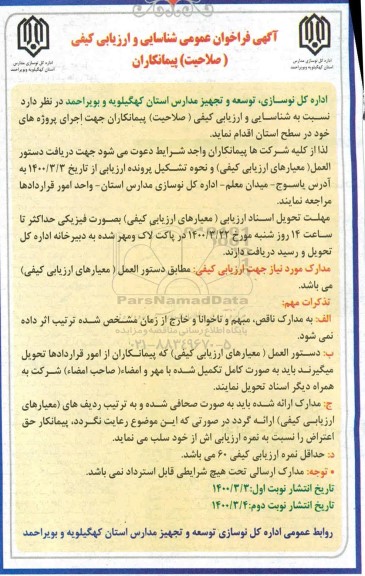 آگهی فراخوان عمومی شناسایی و ارزیابی کیفی
( صلاحیت) پیمانکاران
اداره کل نوسازی مدارس
استان کهگیلویه وبویراحمد
اداره کل نوسازی مدارس
استان کهگیلویه وبویراحمد
اداره کل نوسازی، توسعه و تجهیز مدارس استان کهگیلویه و بویراحمد در نظر دارد
نسبت به شناسایی و ارزیابی کیفی ( صلاحیت) پیمانکاران جهت اجرای پروژه های
خود در سطح استان اقدام نماید.
لذا از کلیه شرکت ها پیمانکاران واجد شرایط دعوت می شود جهت دریافت دستور
العمل( معیارهای ارزیابی کیفی) و نحوه تشکیل پرونده ارزیابی از تاریخ ۱۴۰۰/۳/۳ به
آدرس یاسوج- میدان معلم- اداره کل نوسازی مدارس استان- واحد امور قراردادها
مراجعه نمایند.
مهلت تحویل اسناد ارزیابی ( معیارهای ارزیابی کیفی) بصورت فیزیکی حداکثر تا
ساعت ۱۴ روز شنبه مورخ ۱۴۰۰/۳/۲۲ در پاکت لاک ومهر شده به دبیرخانه اداره کل
تحویل و رسید دریافت دارند.
مدارک مورد نیاز جهت ارزیابی کیفی: مطابق دستور العمل ( معیارهای ارزیابی کیفی)
می باشد.
ParsNamadData
تذکرات مهم:
پایگاه اطلاع رسانی مناقصه و مزایده
الف: به مدارک ناقص، مبهم و ناخوانا و خارج از زمان مشخص شده ترتیب اثر داده
نمی شود.
۰۲۱-۸۸۳۴۹۶۷۰-۵
ب: دستور العمل ( معیارهای ارزیابی کیفی) که پیمانکاران از امور قراردادها تحویل
میگیرند باید به صورت کامل تکمیل شده با مهر و امضاء( صاحب امضاء) شرکت به
همراه دیگر اسناد تحویل نمایند.
ج: مدارک ارائه شده باید به صورت صحافی شده و به ترتیب ردیف های (معیارهای
ارزیابی کیفی) ارائه گردد در صورتی که این موضوع رعایت نگردد، پیمانکار حق
اعتراض را نسبت به نمره ارزیابی اش از خود سلب می نماید.
د: حداقل نمره ارزیابی کیفی ۶۰ می باشد.
* توجه: مدارک ارسالی تحت هیچ شرایطی قابل استرداد نمی باشد.
تاریخ انتشار نوبت اول:۱۴۰۰/۳/۳
تاریخ انتشار نوبت دوم:۱۴۰۰/۳/۴
روابط عمومی اداره کل نوسازی توسعه و تجهیز مدارس استان کهگیلویه و بویراحمد